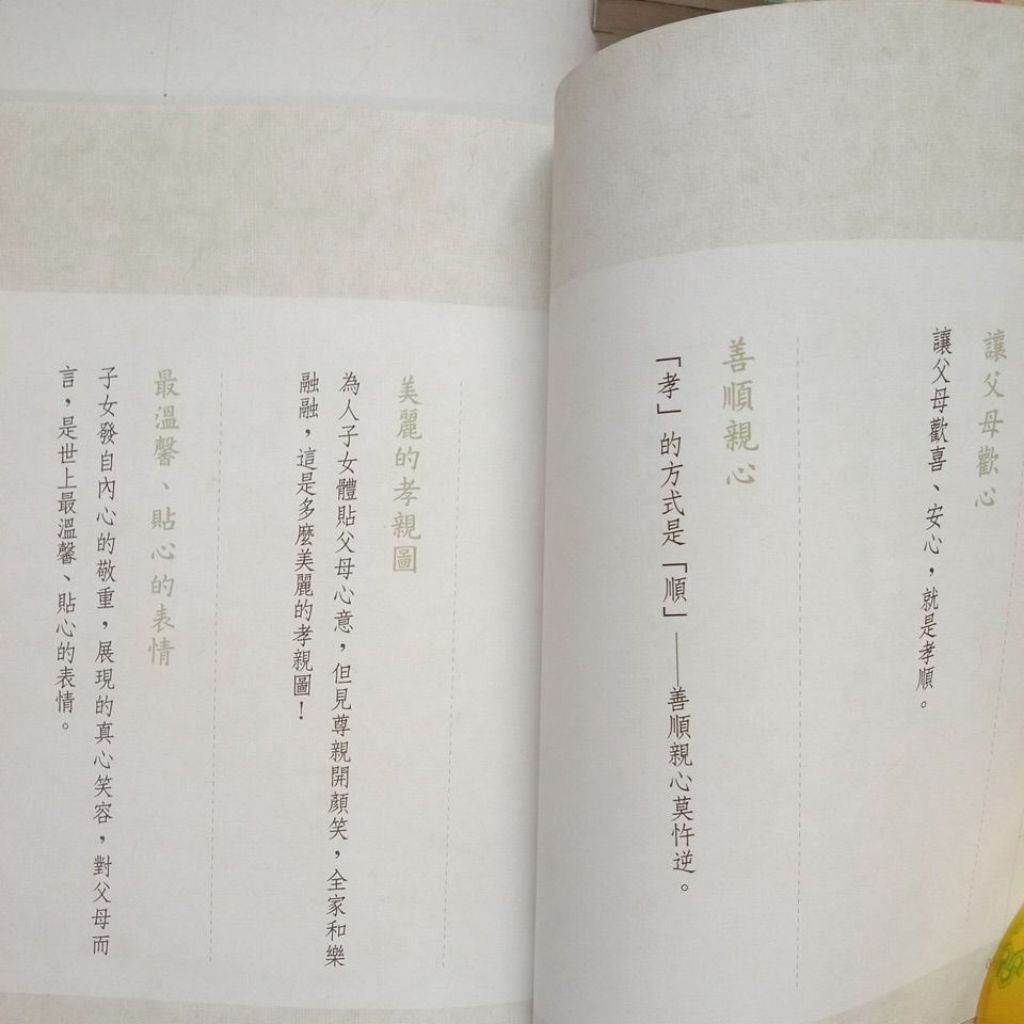 讓父母歡心
讓父母歡喜、安心，就是孝順。
善順親心
「孝」的方式是「順」——善順親心莫忤逆。
美麗的孝親圖
為人子女體貼父母心意，但見尊親開顏笑，全家和樂
融融，這是多麼美麗的孝親圖！
最溫馨、貼心的表情
子女發自內心的敬重，展現的真心笑容，對父母而
言，是世上最溫馨、貼心的表情。